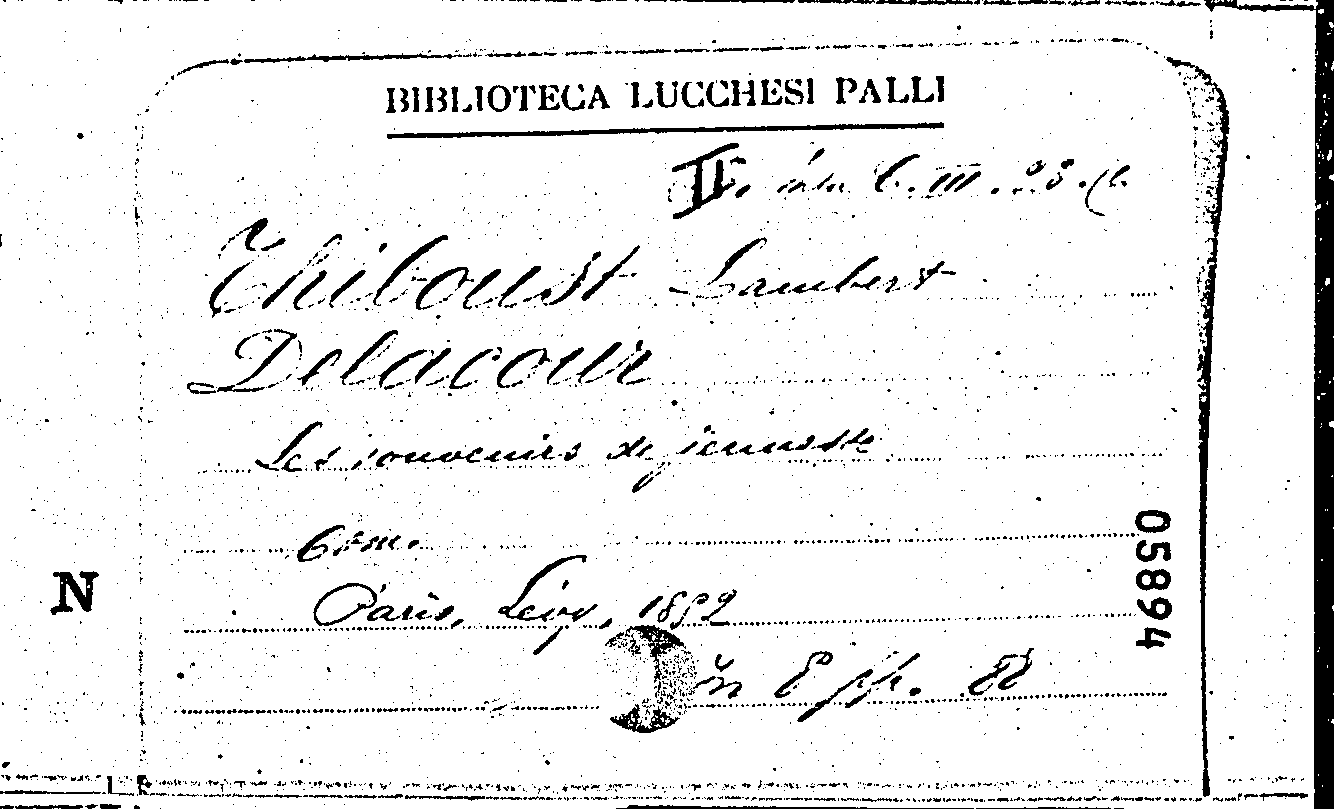 BIBLIOTECA LUCCHESI PALLI
II. C. III.
Thiboust Lambert
Delacour
Les souvenirs de jeunesse
Com.
Paris, Levy, 1892
in 8 pp. 88
05894
N